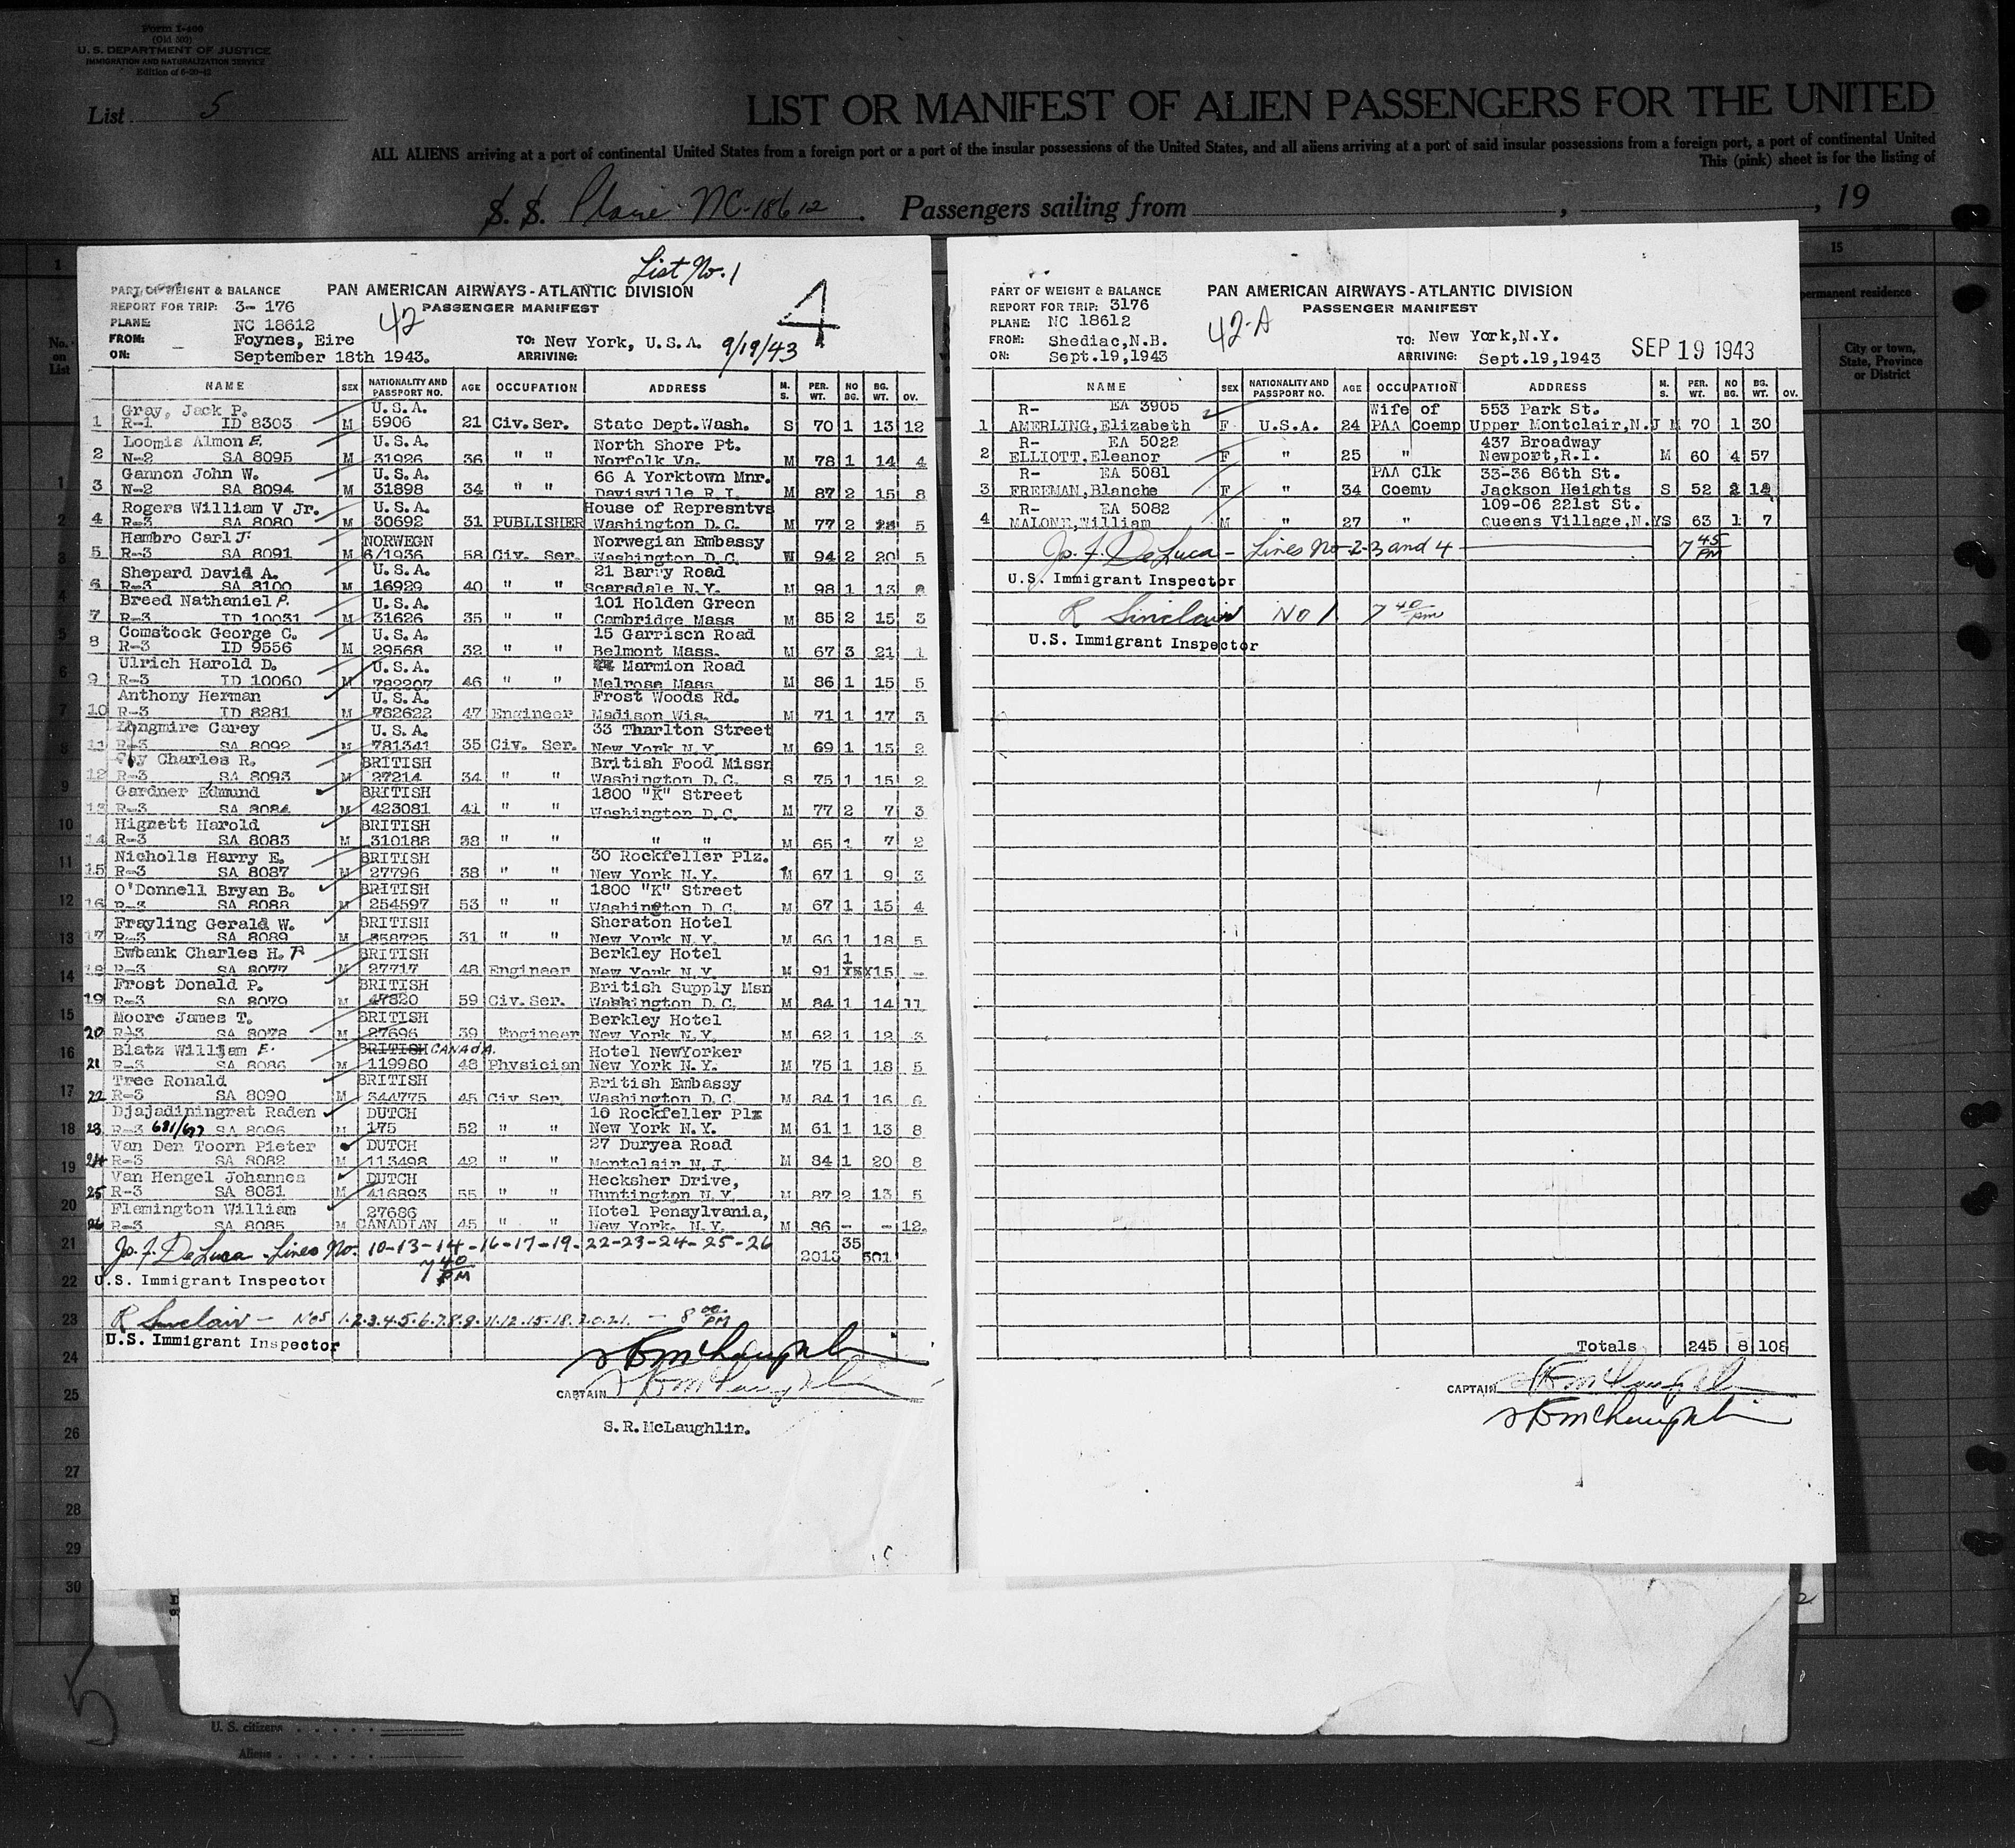 Form I-400
(Old 500)
U. S. DEPARTMENT OF JUSTICE
IMMIGRATION AND NATURALIZATION SERVICE
Edition of 6-20-42
List 5
LIST OR MANIFEST OF ALIEN PASSENGERS FOR THE UNITED
ALL ALIENS arriving at a port of continental United States from a foreign port or a port of the insular possessions of the United States, and all aliens arriving at a port of said insular possessions from a foreign port, a port of continental United
This (pink) sheet is for the listing of
S. S. Plane NC-18612. Passengers sailing from , , 19
List No. 1
PART OF WEIGHT & BALANCE PAN AMERICAN AIRWAYS - ATLANTIC DIVISION
REPORT FOR TRIP: 3- 176 PASSENGER MANIFEST
42 4
PLANE: NC 18612
FROM: Foynes, Eire TO: New York, U.S.A. 9/19/43
ON: September 18th 1943. ARRIVING:
NAME SEX NATIONALITY AND PASSPORT NO. AGE OCCUPATION ADDRESS M. S. PER. WT. NO BG. BG. WT. OV.
Gray, Jack P. U.S.A.
1 R-1 ID 8303 M 5906 21 Civ.Ser. State Dept.Wash. S 70 1 13 12
Loomis Almon E. U.S.A. North Shore Pt.
2 N-2 SA 8095 M 31926 36 " " Norfolk Va. M 78 1 14 4
Gannon John W. U.S.A. 66 A Yorktown Mnr.
3 N-2 SA 8094 M 31898 34 " " Davisville R.I. M 87 2 15 8
Rogers William V Jr. U.S.A. House of Represntvs
4 R-3 SA 8080 M 30692 31 PUBLISHER Washington D.C. M 77 2 5
Hambro Carl J. NORWEGN Norwegian Embassy
5 R-3 SA 8091 M 6/1936 58 Civ. Ser. Washington D.C. W 94 2 20 5
Shepard David A. U.S.A. 21 Barry Road
6 R-3 SA 8100 M 16929 40 " " Scarsdale N.Y. M 98 1 13
Breed Nathaniel P. U.S.A. 101 Holden Green
7 R-3 ID 10031 M 31626 35 " " Cambridge Mass M 85 2 15 3
Comstock George C. U.S.A. 15 Garrison Road
8 R-3 ID 9556 M 29568 32 " " Belmont Mass. M 67 3 21 1
Ulrich Harold D. U.S.A. Marmion Road
9 R-3 ID 10060 M 782207 46 " " Melrose Mass M 86 1 15 5
Anthony Herman U.S.A. Frost Woods Rd.
10 R-3 ID 8281 M 782622 47 Engineer Madison Wis. M 71 1 17 3
Longmire Carey U.S.A. 33 Tharlton Street
11 R-3 SA 8092 M 781341 35 Civ. Ser. New York N.Y. M 69 1 15 2
Charles R. BRITISH British Food Missn
12 R-3 SA 8093 M 27214 34 " " Washington D.C. S 75 1 15 2
Gardner Edmund BRITISH 1800 "K" Street
13 R-3 SA 8084 M 423081 41 " " Washington D.C. M 77 2 7 3
Hignett Harold BRITISH
14 R-3 SA 8083 M 310188 38 " " " " M 65 1 7 2
Nicholls Harry E. BRITISH 30 Rockfeller Plz.
15 R-3 SA 8087 M 27796 38 " " New York N.Y. M 67 1 9 3
O'Donnell Bryan B. BRITISH 1800 "K" Street
16 R-3 SA 8088 M 254597 53 " " Washington D.C. M 67 1 15 4
Frayling Gerald W. BRITISH Sheraton Hotel
17 R-3 SA 8089 M 858725 31 " " New York N.Y. M 66 1 18 5
Ewbank Charles H. P BRITISH Berkley Hotel 1
18 R-3 SA 8077 M 27717 48 Engineer New York N.Y. M 91 15 -
Frost Donald P. BRITISH British Supply Msn
19 R-3 SA 8079 M 47820 59 Civ.Ser. Washington D.C. M 84 1 14 11
Moore James T. BRITISH Berkley Hotel
20 R-3 SA 8078 M 27696 39 Engineer New York N.Y. M 62 1 12 3
Blatz William E. BRITISH CANADA. Hotel NewYorker
21 R-3 SA 8086 M 119980 48 Physician New York N.Y. M 75 1 18 5
Tree Ronald BRITISH British Embassy
22 R-3 SA 8090 M 544775 45 Civ Ser. Washington D.C. M 84 1 16 6
Djajadiningrat Raden DUTCH 10 Rockfeller Plz
23 R-3 681/677 SA 8096 M 175 52 " " New York N.Y. M 61 1 13 8
Van Den Toorn Pieter DUTCH 27 Duryea Road
24 R-3 SA 8082 M 113498 42 " " Montclair N.J. M 84 1 20 8
Van Hengel Johannes DUTCH Hecksher Drive,
25 R-3 SA 8081 M 416893 55 " " Huntington N.Y. M 87 2 13 5
Flemington William 27686 Hotel Pensylvania,
26 R-3 SA 8085 M CANADIAN 45 " " New York. N.Y. M 86 - - 12.
Jo. F. DeLuca - Lines No. 10-13-14-16-17-19-22-23-24-25-26 2013 35 501
U.S. Immigrant Inspector 7 40 PM
R Sinclair - Nos 1.2.3.4.5.6.7.8.9.11.12.15.18.20.21. - 8 00 PM
U.S. Immigrant Inspector
S R McLaughlin
CAPTAIN S R McLaughlin
S.R.McLaughlin.
PART OF WEIGHT & BALANCE PAN AMERICAN AIRWAYS - ATLANTIC DIVISION
REPORT FOR TRIP: 3176 PASSENGER MANIFEST
PLANE: NC 18612 42-A
FROM: Shediac,N.B. TO: New York,N.Y.
ON: Sept.19,1943 ARRIVING: Sept.19,1943 SEP 19 1943
NAME SEX NATIONALITY AND PASSPORT NO. AGE OCCUPATION ADDRESS M. S. PER. WT. NO BG. BG. WT. OV.
R- EA 3905 Wife of 553 Park St.
1 AMERLING,Elizabeth F U.S.A. 24 PAA Coemp Upper Montclair,N.J M 70 1 30
R- EA 5022 437 Broadway
2 ELLIOTT,Eleanor F " 25 " Newport,R.I. M 60 4 57
R- EA 5081 PAA Clk 33-36 86th St.
3 FREEMAN,Blanche F " 34 Coemp Jackson Heights S 52 2 14
R- EA 5082 109-06 221st St.
4 MALONE,William M " 27 " Queens Village,N.Y S 63 1 7
Jo. F. DeLuca - Lines No 2-3 and 4 7 45 PM
U.S. Immigrant Inspector
R Sinclair No 1 7 40 pm
U.S. Immigrant Inspector
Totals 245 8 108
CAPTAIN S R McLaughlin
S R McLaughlin
15
permanent residence
City or town, State, Province or District
No. on List
1
1
2
3
4
5
6
7
8
9
10
11
12
13
14
15
16
17
18
19
20
21
22
23
24
25
26
27
28
29
30
2
5
U. S. citizens
Aliens